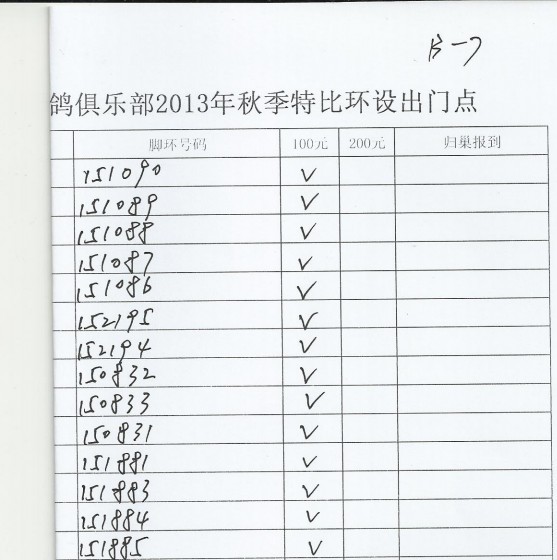 B-7
鸽俱乐部2013年秋季特比环设出门点
脚环号码 100元 200元 归巢报到
151090 √
151089 √
151088 √
151087 √
151086 √
152195 √
152194 √
150832 √
150833 √
150831 √
151881 √
151883 √
151884 √
151885 √